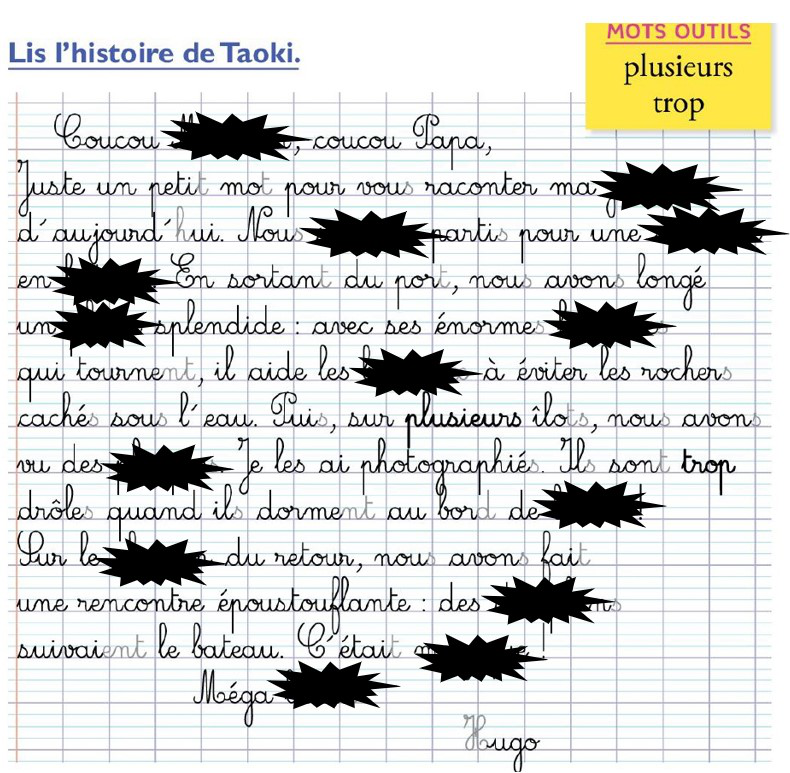 MOTS OUTILS
plusieurs
trop
Lis l'histoire de Taoki.
Coucou , coucou Papa,
Juste un petit mot pour vous raconter ma
d'aujourd'hui. Nous partis pour une
en En sortant du port, nous avons longé
un splendide : avec ses énormes
qui tournent, il aide les à éviter les rochers
cachés sous l'eau. Puis, sur plusieurs îlots, nous avons
vu des Je les ai photographiés. Ils sont trop
drôles quand ils dorment au bord de !
Sur le du retour, nous avons fait
une rencontre époustouflante : des
suivaient le bateau. C'était !
Méga
Hugo